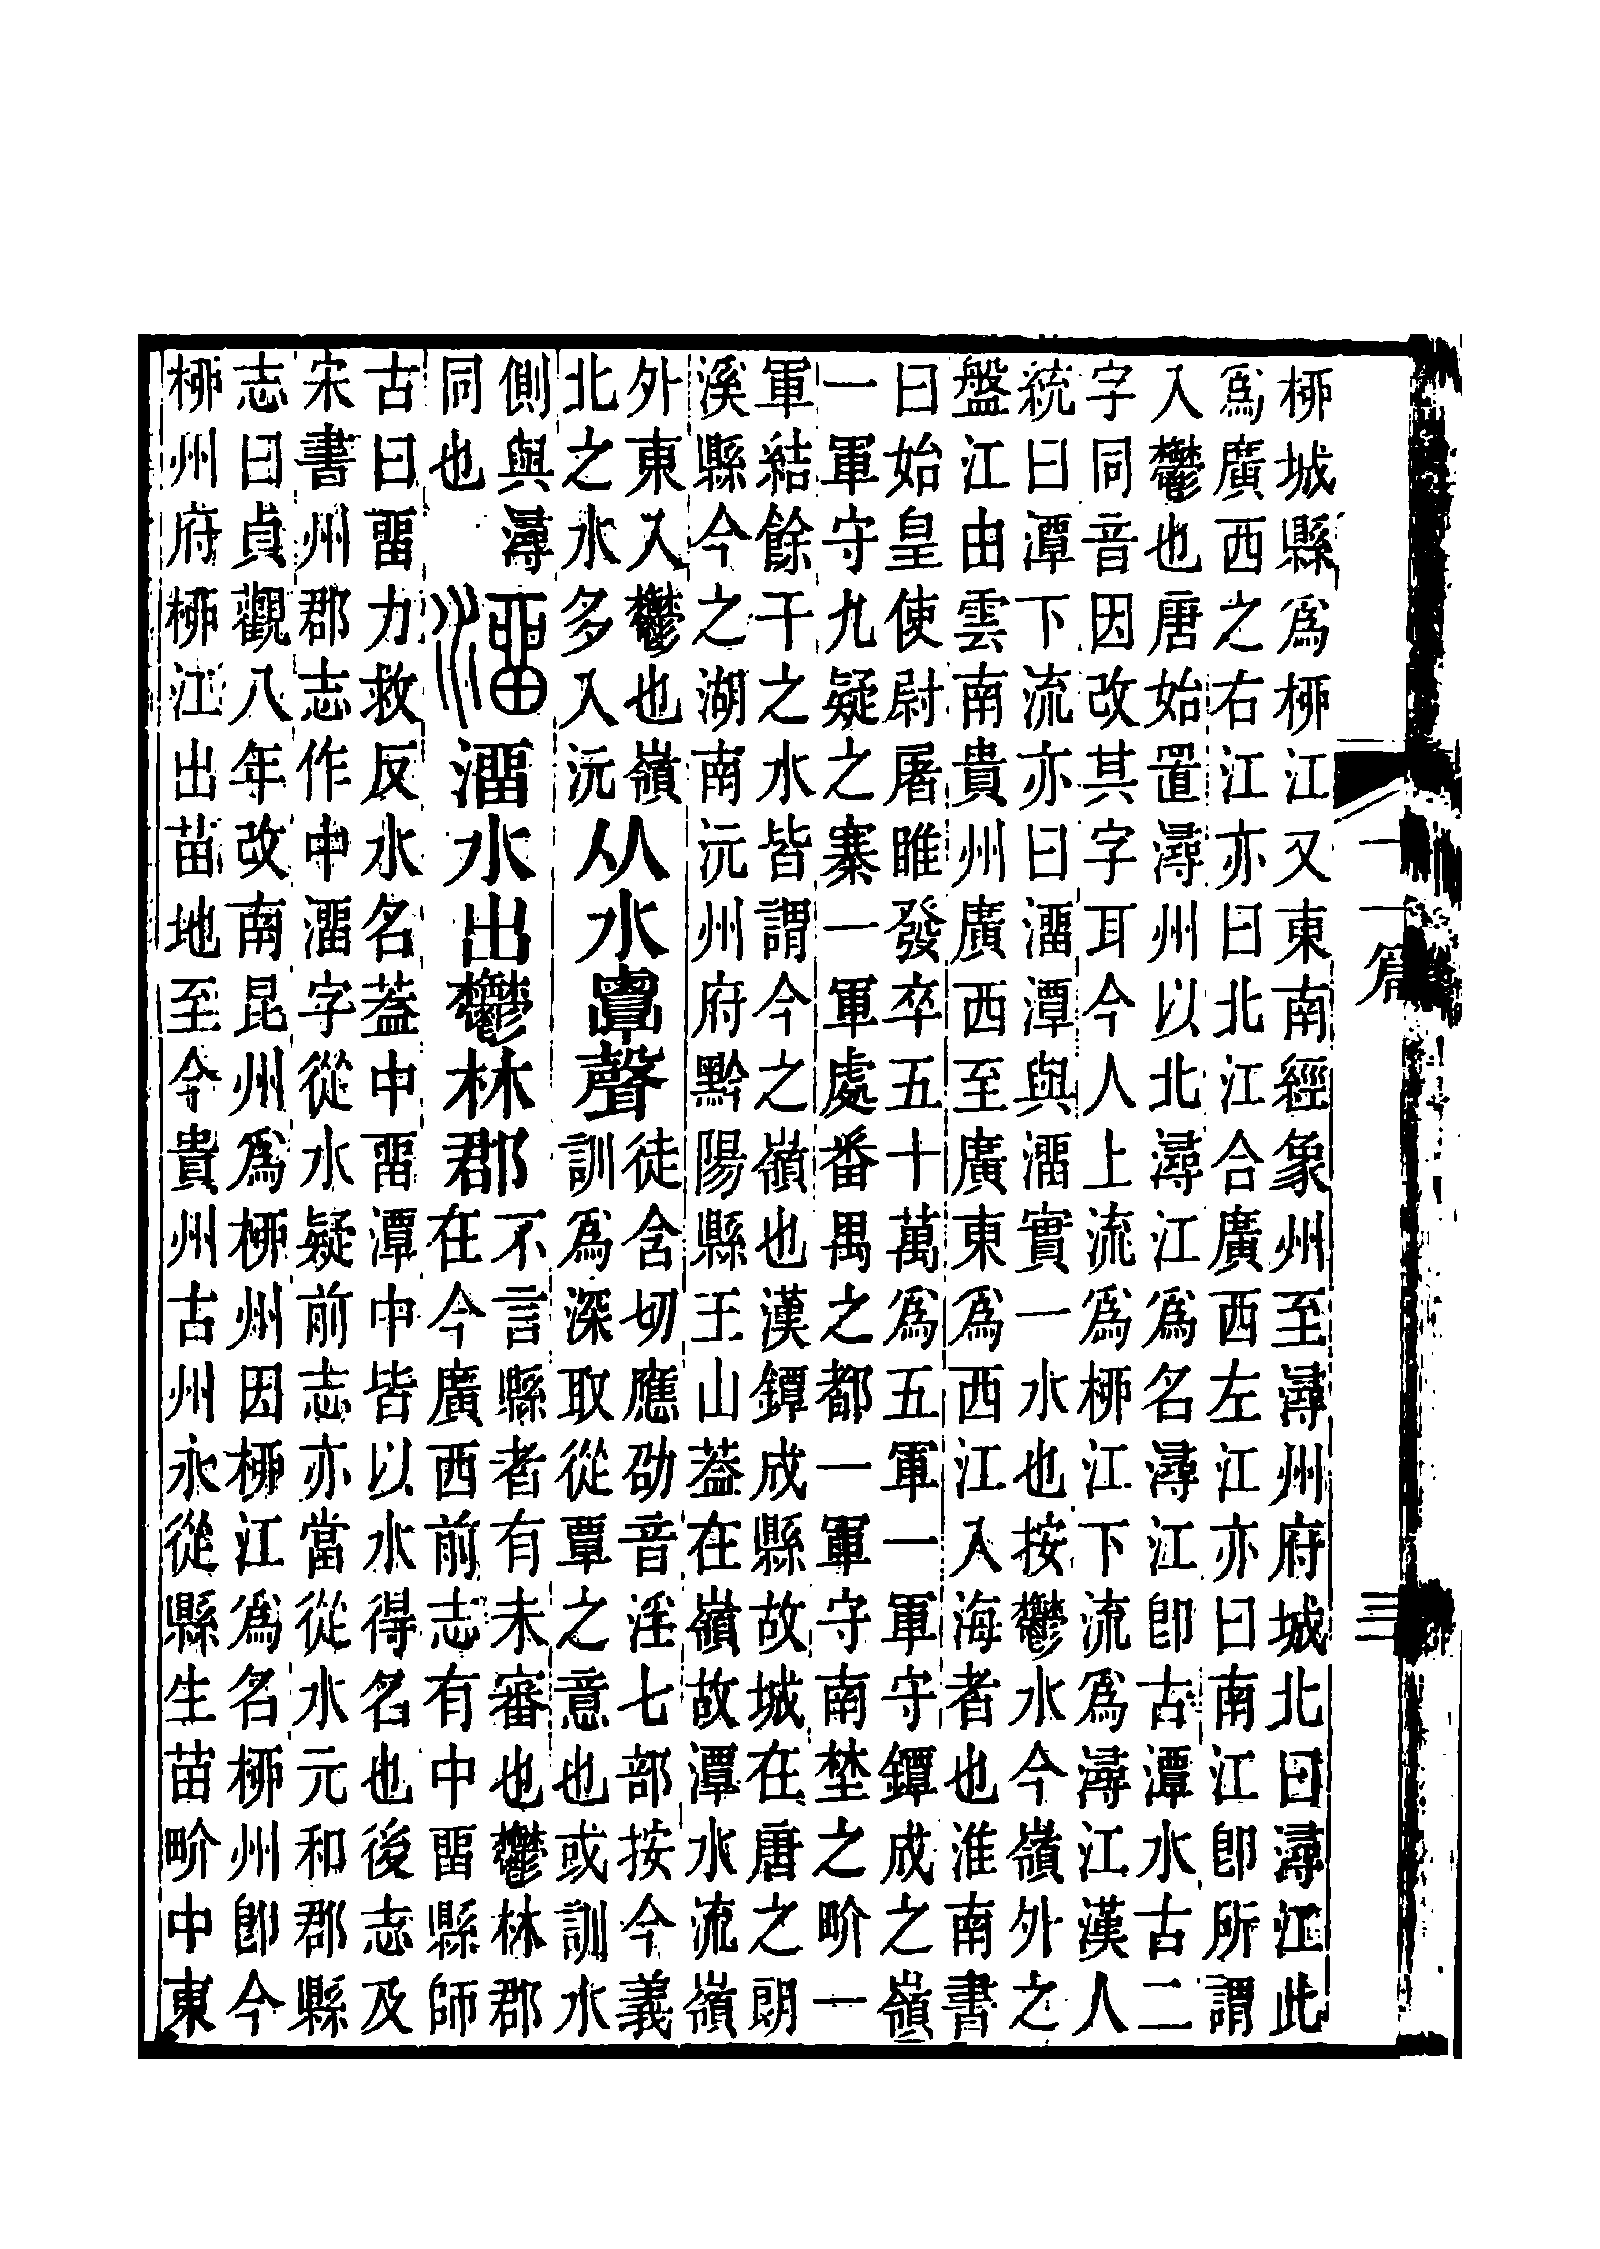 桞城縣爲桞江又東南經象州至潯州府城北曰潯江此
爲廣西之右江亦曰北江合廣西左江亦曰南江卽所謂
入鬱也唐始置潯州以北潯江爲名潯江卽古潭水古二
字同音因改其字耳今人上流爲桞江下流爲潯江漢人
統曰潭下流亦曰澑潭與澑實一水也按鬱水今嶺外之
盤江由雲南貴州廣西至廣東爲西江入海者也淮南書
曰始皇使尉屠睢發卒五十萬爲五軍一軍守鐔成之嶺
一軍守九疑之寨一軍處番禺之都一軍守南埜之畍一
軍結餘干之水皆謂今之嶺也漢鐔成縣故城在唐之朗
溪縣今之湖南沅州府黔陽縣王山葢在嶺故潭水流嶺
外東入鬱也嶺
北之水多入沅
从水𪉷聲
徒含切應劭音淫七部按今義
訓爲深取從覃之意也或訓水
側與潯
同也
澑
澑水出鬱林郡
不言縣者有未審也鬱林郡
在今廣西前志有中畱縣師
古曰畱力救反水名葢中畱潭中皆以水得名也後志及
宋書州郡志作中澑字從水疑前志亦當從水元和郡縣
志曰貞觀八年改南昆州爲桞州因桞江爲名桞州卽今
桞州府桞江出苗地至今貴州古州永從縣生苗畍中東
十一篇
三